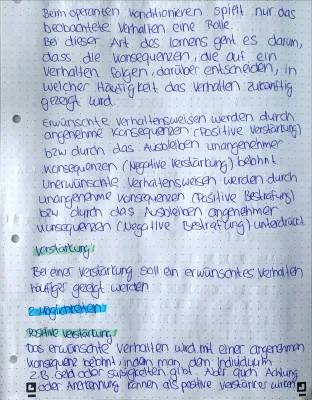 Beim operanten Konditionieren spielt nur das
beobachtete Verhalten eine Rolle.
Bei dieser Art des Lernens geht es darum,
dass die Konsequenzen, die auf ein
Verhalten folgen, darüber entscheiden, in
welcher Häufigkeit das Verhalten zukünftig
gezeigt wird.
Erwünschte Verhaltensweisen werden durch
angenehme Konsequenzen (Positive Verstärkung)
bzw durch das Ausbleiben unangenehmer
Konsequenzen (Negative Verstärkung) belohnt.
Unerwünschte Verhaltensweisen werden durch
unangenehme Konsequenzen (Positive Bestrafung)
bzw durch das Ausbleiben angenehmer
Konsequenzen (Negative Bestrafung) unterdrückt
Verstärkung:
Bei einer Verstärkung soll ein erwünschtes Verhalten
häufiger gezeigt werden
2 Möglichkeiten
Positive Verstärkung:
Das erwünschte Verhalten wird mit einer angenehmen
Konsequenz belohnt, indem man dem Individuum
z.B. Geld oder Süßigkeiten gibt. Aber auch Achtung
oder Anerkennung können als positive Verstärker wirken